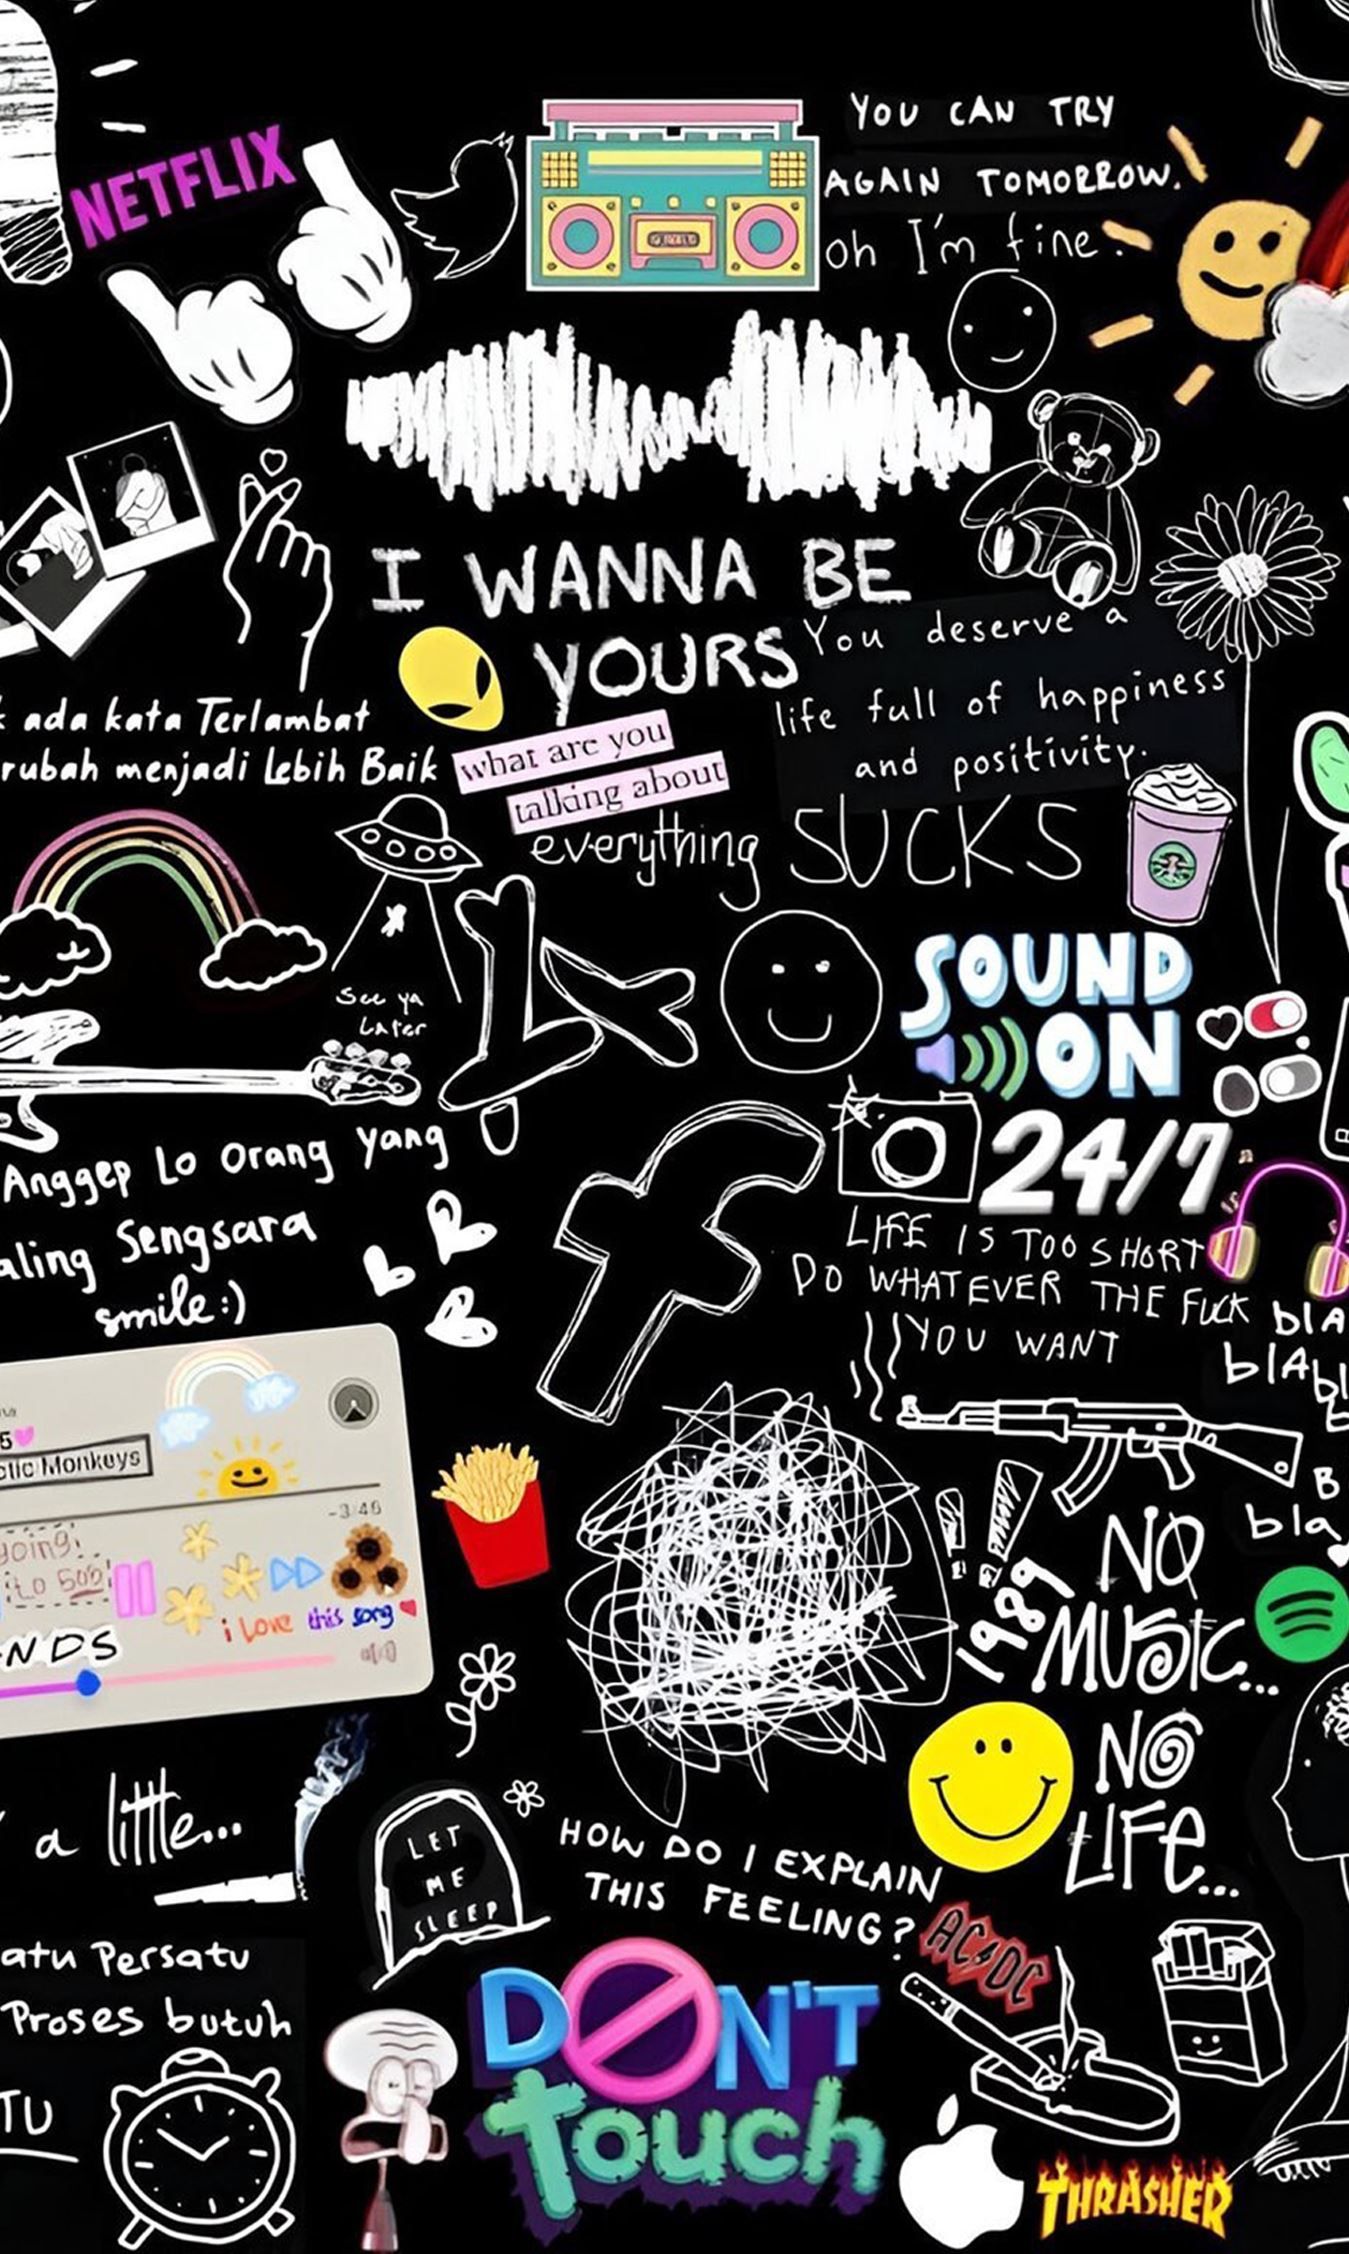 NETFLIX
YOU CAN TRY
AGAIN TOMORROW.
oh I'm fine.
I WANNA BE
YOURS
You deserve a
life full of happiness
and positivity.
ada kata Terlambat
rubah menjadi Lebih Baik
what are you
talking about
everything SUCKS
See ya
Later
SOUND
ON
24/7
Anggep Lo Orang yang
aling Sengsara
smile:)
LIFE IS TOO SHORT
DO WHATEVER THE FUCK
YOU WANT
blA
blA
B
bla
Monkeys
-3:46
going
to 505
i Love this song
NDS
1989
NO
MUSIC...
NO
LIFE...
a little...
LET
ME
SLEEP
HOW DO I EXPLAIN
THIS FEELING?
AC DC
atu Persatu
Proses butuh
TU
DON'T
touch
THRASHER